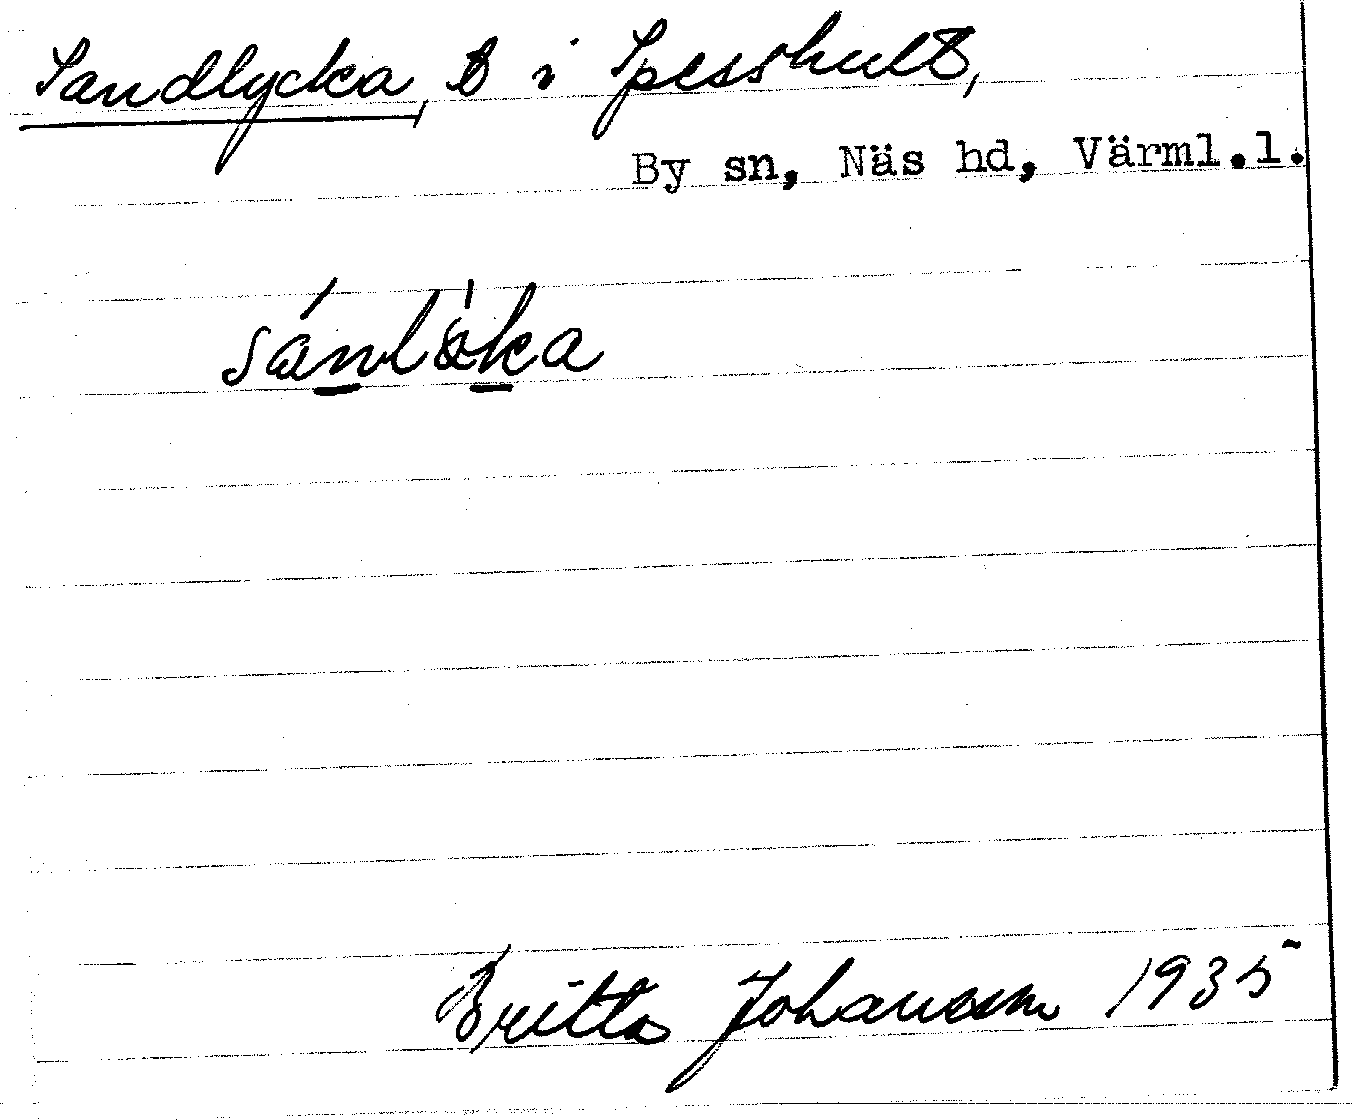 Sandlycka, t i Spesshult,
By sn, Näs hd, Värml.l.
sánlö̀ka
Britta Johansson 1935